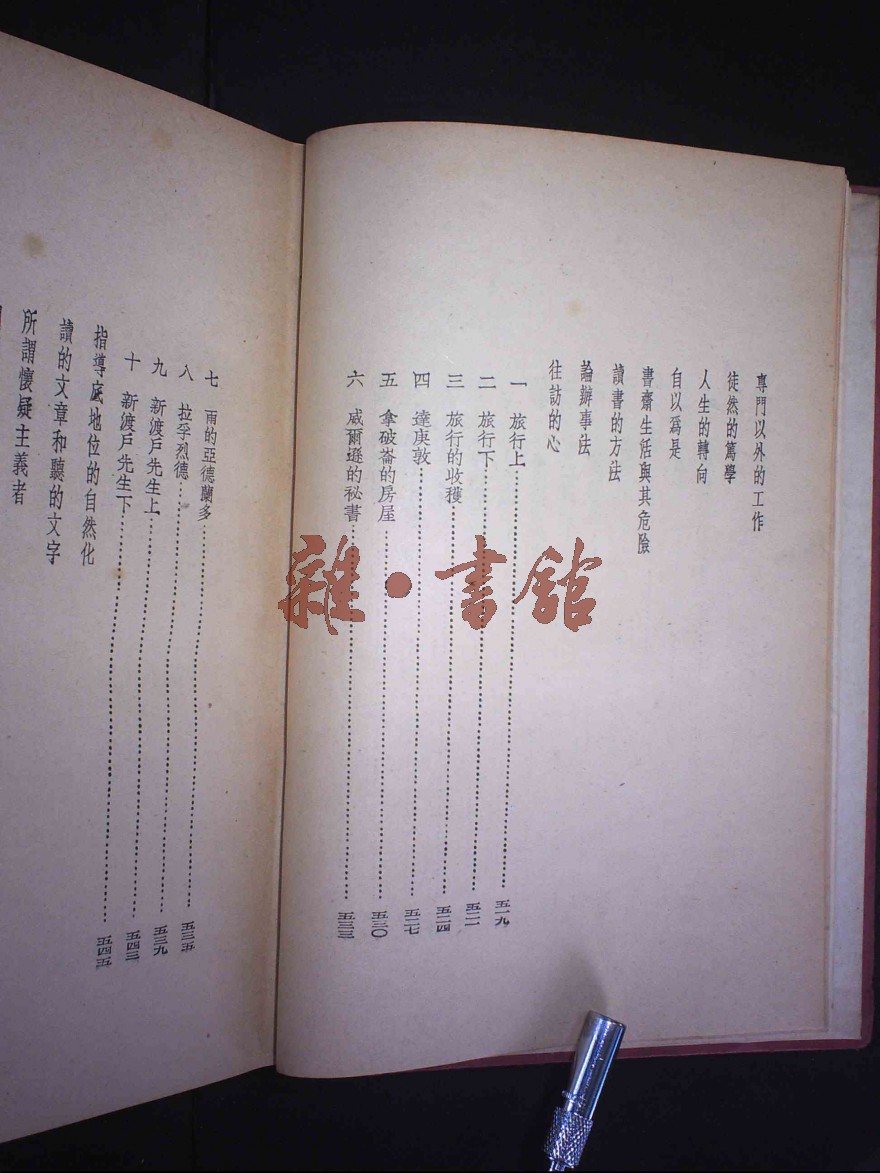 專門以外的工作
徒然的篤學
人生的轉向
自以爲是
書齋生活與其危險
讀書的方法
論辦事法
往訪的心
一 旅行上……五一九
二 旅行下……五二一
三 旅行的收穫……五二四
四 達庚敦……五二七
五 拿破崙的房屋……五三〇
六 威爾遜的秘書……五三三
七 雨的亞德蘭多……五三五
八 拉孚烈德……五三九
九 新渡戶先生上……五四三
十 新渡戶先生下……五四五
指導底地位的自然化
讀的文章和聽的文字
所謂懷疑主義者
雜·書館